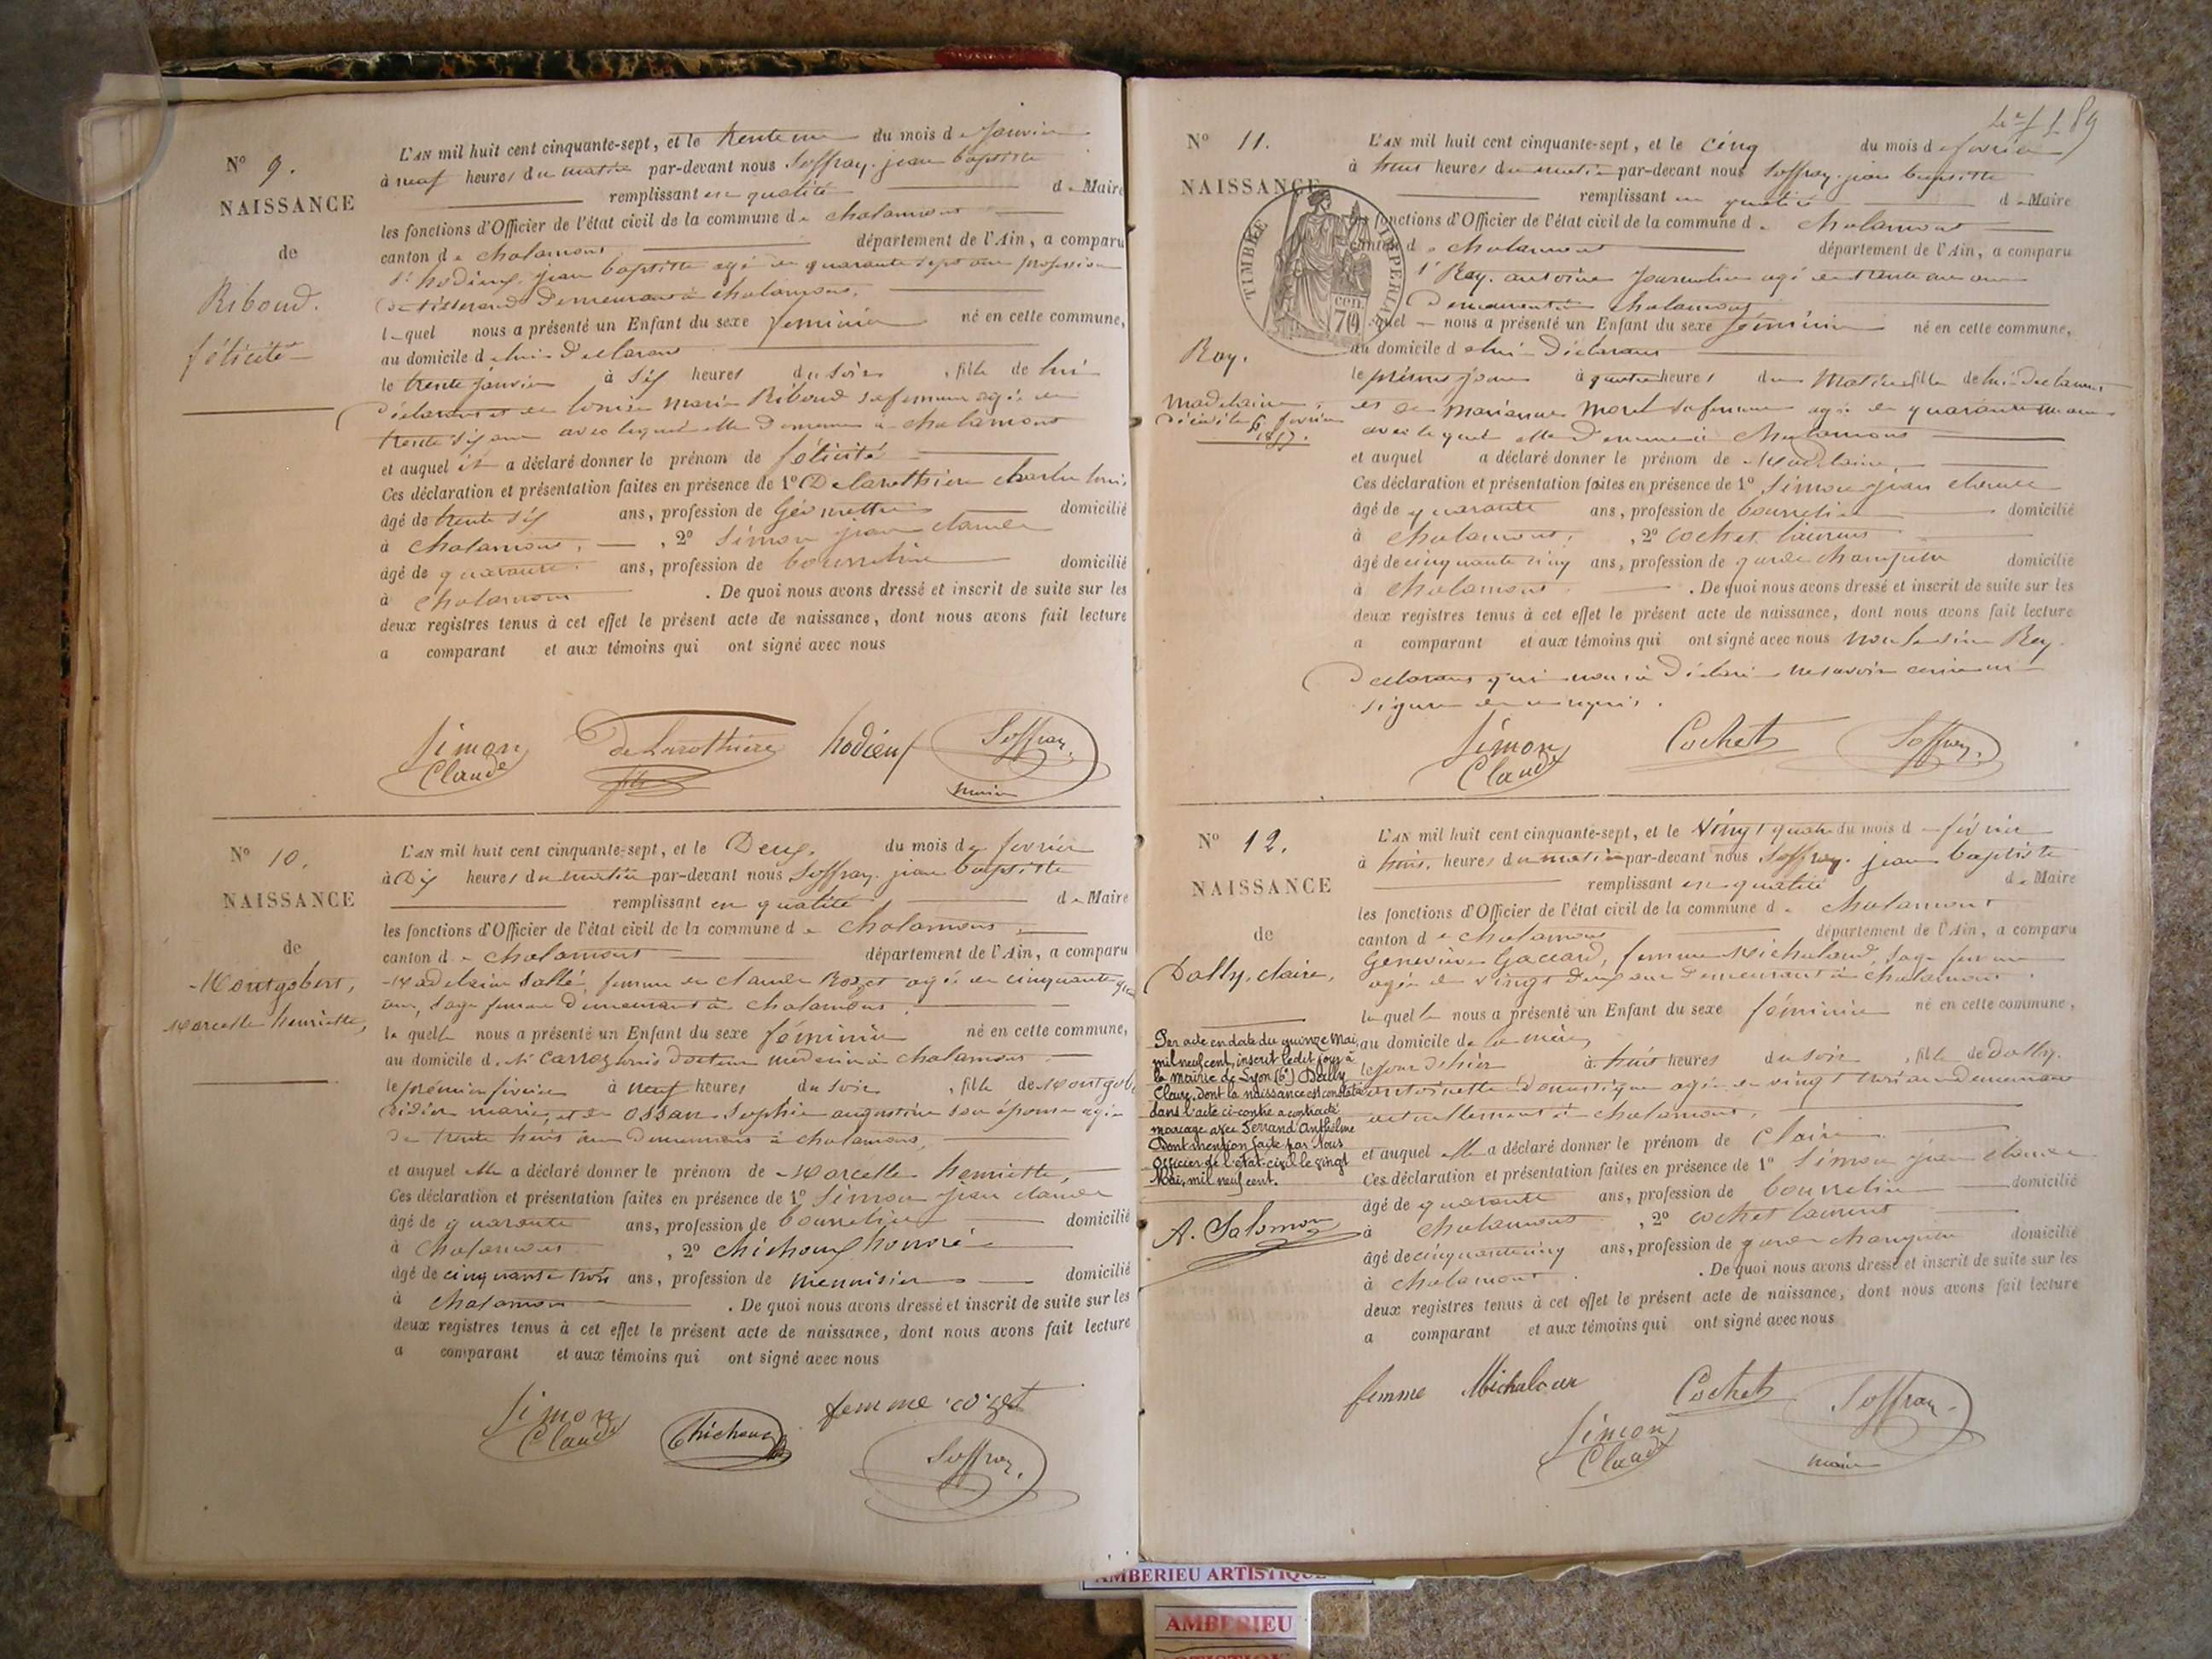 N° 9.
NAISSANCE
de
Riboud.
félicité
L'AN mil huit cent cinquante-sept, et le trente un du mois de Janvier
à neuf heures du matin par-devant nous Soffray. jean baptiste
remplissant en qualité de Maire
les fonctions d'Officier de l'état civil de la commune de chalamont
canton de chalamont département de l'Ain, a comparu
jean baptiste agé de quarante sept ans profession
de tisserand Demeurant à chalamont.
lequel nous a présenté un Enfant du sexe féminin né en cette commune,
au domicile de lui Déclarant
le trente janvier à six heures du soir, fille de lui
Déclarant et de Louise Marie Riboud sa femme agée de
trente six ans avec lequel elle Demeure à chalamont
et auquel il a déclaré donner le prénom de félicité
Ces déclaration et présentation faites en présence de 1° Delarothiere charles louis
âgé de trente six ans, profession de Géometre domicilié
à chalamont, 2° Simon jean claude
âgé de quarante ans, profession de bourrelier domicilié
à chalamont. De quoi nous avons dressé et inscrit de suite sur les
deux registres tenus à cet effet le présent acte de naissance, dont nous avons fait lecture
a comparant et aux témoins qui ont signé avec nous
Simon
Claude
De Larothiere
hodieux
Soffray
maire
N° 10.
NAISSANCE
de
Montgobert,
Marcelle henriette,
L'AN mil huit cent cinquante-sept, et le Deux. du mois de fevrier
à Dix heures du matin par-devant nous Soffray. jean baptiste
remplissant en qualité de Maire
les fonctions d'Officier de l'état civil de la commune de chalamont
canton de chalamont département de l'Ain, a comparu
Madelaine Sallé, femme de claude Rozet agée de cinquante
ans, sage femme Demeurant à chalamont.
laquelle nous a présenté un Enfant du sexe féminin né en cette commune,
au domicile de Mr Carroz docteur médecin à chalamont
le premier fevrier à neuf heures du soir, fille de Montgob
Didier marie, et de Ossan Sophie augustine son épouse agée
de trente trois ans Demeurant à chalamont,
et auquel elle a déclaré donner le prénom de Marcelle henriette,
Ces déclaration et présentation faites en présence de 1° Simon jean claude
âgé de quarante ans, profession de bourrelier domicilié
à chalamont, 2° chichoux honoré
âgé de cinquante trois ans, profession de menuisier domicilié
à chalamont. De quoi nous avons dressé et inscrit de suite sur les
deux registres tenus à cet effet le présent acte de naissance, dont nous avons fait lecture
a comparant et aux témoins qui ont signé avec nous
Simon
Claude
Chichoux
femme rozet
Soffray.
89
N° 11.
NAISSANCE
TIMBRE IMPERIAL
70 cen.
Rey.
Madelaine,
Décédée le 6 fevrier
1857.
L'AN mil huit cent cinquante-sept, et le cinq du mois de fevrier
à huit heures du matin par-devant nous Soffray. jean baptiste
remplissant en qualité de Maire
les fonctions d'Officier de l'état civil de la commune de chalamont
canton de chalamont département de l'Ain, a comparu
Sr Rey. antoine journalier agé de trente ans
Demeurant à chalamont
lequel nous a présenté un Enfant du sexe féminin né en cette commune,
au domicile de lui Déclarant
le même jour à quatre heures du Matin, fille de lui Declarant
et de Marianne Morel sa femme agée de quarante un ans
avec lequel elle Demeure à chalamont
et auquel a déclaré donner le prénom de Madelaine,
Ces déclaration et présentation faites en présence de 1° Simon jean claude
âgé de quarante ans, profession de bourrelier domicilié
à chalamont, 2° cochet laurent
âgé de cinquante cinq ans, profession de garde champetre domicilié
à chalamont. De quoi nous avons dressé et inscrit de suite sur les
deux registres tenus à cet effet le présent acte de naissance, dont nous avons fait lecture
a comparant et aux témoins qui ont signé avec nous non le sieur Rey.
Declarant qui nous a Déclaré ne savoir écrire ni
signer de ce requis.
Simon
Claude
Cochet
Soffray.
N° 12.
NAISSANCE
de
Dally, claire,
Par acte en date du quinze Mai
mil neuf cent, inscrit ledit jour à
la mairie de Lyon (6e) Dally
Claire, dont la naissance est constatée
dans l'acte ci-contre a contracté
mariage avec Ferrand Anthelme
Dont mention faite par Nous
Officier de l'état-civil le vingt
Mai, mil neuf cent.
A. Salomon
L'AN mil huit cent cinquante-sept, et le Vingt quatre du mois de février
à huit heures du matin par-devant nous Soffray. jean baptiste
remplissant en qualité de Maire
les fonctions d'Officier de l'état civil de la commune de chalamont
canton de chalamont département de l'Ain, a comparu
Genevieve Gaccard, femme Michaloud, sage femme
agée de Vingt Deux ans Demeurant à chalamont.
laquelle nous a présenté un Enfant du sexe féminin né en cette commune,
au domicile de la mère,
le jour d'hier à huit heures du soir, fille de Dally.
antoinette Domestique agée de vingt trois ans Demeurant
actuellement à chalamont,
et auquel elle a déclaré donner le prénom de Claire
Ces déclaration et présentation faites en présence de 1° Simon jean claude
âgé de quarante ans, profession de bourrelier domicilié
à chalamont, 2° cochet laurent
âgé de cinquante cinq ans, profession de garde champetre domicilié
à chalamont. De quoi nous avons dressé et inscrit de suite sur les
deux registres tenus à cet effet le présent acte de naissance, dont nous avons fait lecture
a comparant et aux témoins qui ont signé avec nous
femme Michaloux
Cochet
Soffray
Simon
Claude
maire
AMBERIEU ARTISTIQUE
AMBERIEU